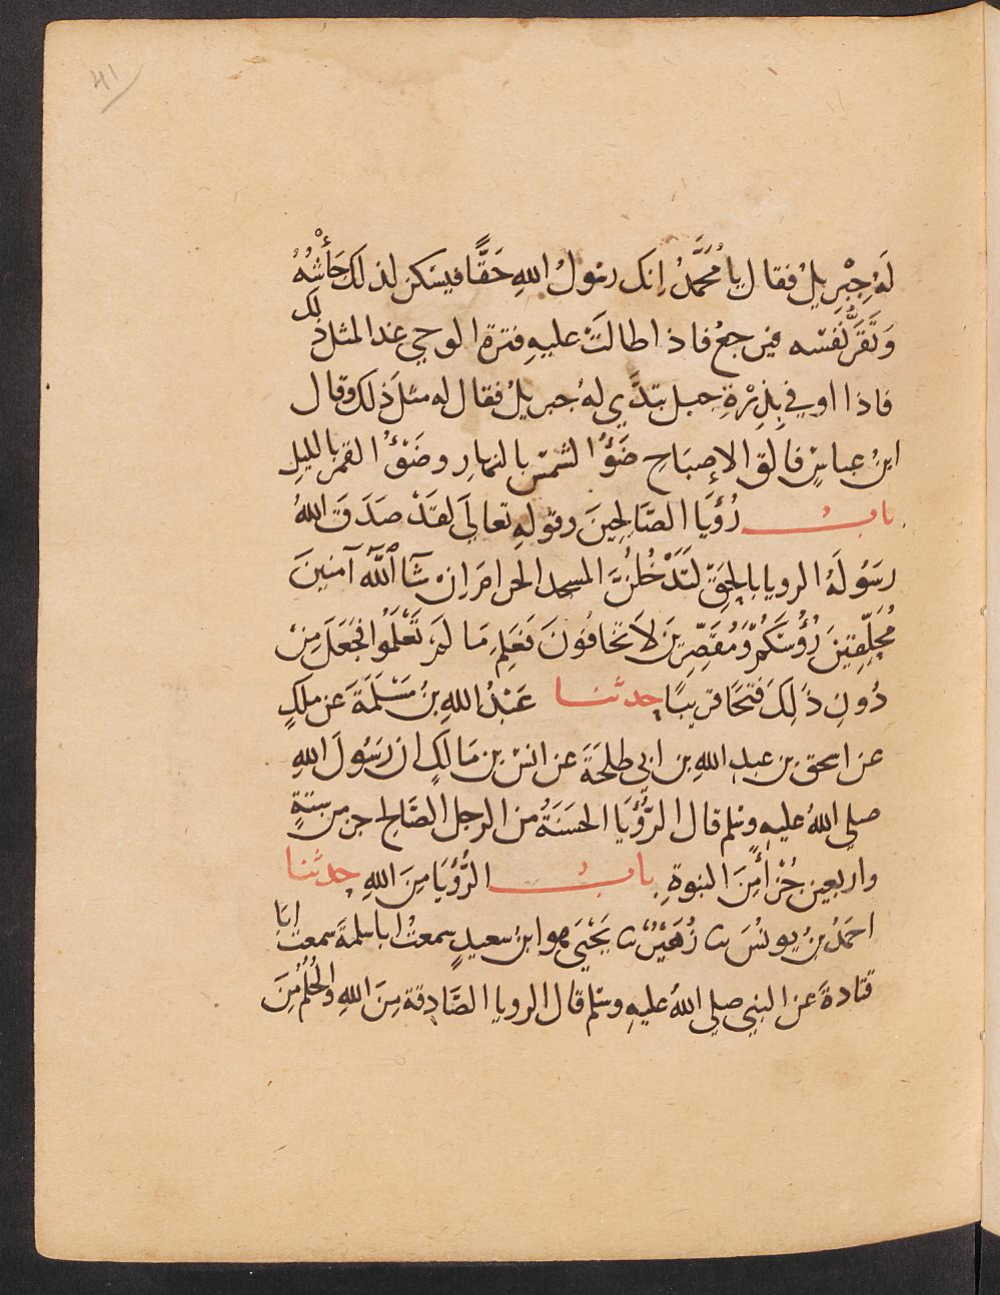 ٤١
لَهُ جِبْرِيلُ فقال يا مُحَمَّدُ إنك رسولُ اللهِ حَقًّا فيسكن لذلك جَأْشُهُ
وَتَقَرُّ نَفسه فيرجعُ فاذا طالَتْ عليهِ فترة الوحي غدا لمثل ذلك
فاذا اوفي بِذِرْوَةِ جبل تبدَّي لهُ جبريلُ فقال له مثلَ ذلك وقال
ابنُ عباسٍ فالق الإصبَاحِ ضَوْءُ الشمسِ بالنهارِ وضَوْءُ القمر بالليلِ
بابُ رُؤْيَا الصَّالِحِينَ وقولِهِ تعالَي لقَدْ صَدَقَ اللهُ
رسَولَهُ الرويا بالحقِّ لتَدْخُلُنَّ المسجد الحرامَ اِنْ شَآ اللّٰه آمنينَ
مُحَلِّقِينَ رُؤُسَكُمْ وَمُقَصِّرِينَ لاَ تخافُونَ فَعَلِمَ مَا لَمْ تَعْلَمُوا فجَعَلَ مِنْ
دُونِ ذٰلِكَ فتحًا قريبًا حدثنا عَبْدُ اللهِ بنُ مَسْلَمَةَ عن ملكٍ
عن اسحق بن عبدِ اللهِ بن ابي طلحَةَ عن انسْ بن مَالكٍ ان رَسُولَ اللهِ
صلي اللهُ عليهِ وسلم قال الرُّؤْيَا الحسَنَةُ من الرجل الصَّالِح جزء من ستةٍ
واربعين جُزْأً مِنَ النبوةِ بابُ الرُّؤْيَا مِنَ اللهِ حدثنا
احمَدُ بنُ يونُسَ ثنا زُهَيْرٌ ثنا يَحْيَي هو ابنُ سعيدٍ سمعتُ ابا سلمةَ سمعتُ ابَا
قتادةَ عن النبي صلي اللهُ عليهِ وسلم قال الرويا الصَّادِقة مِنَ اللهِ والحُلُمُ مِنَ